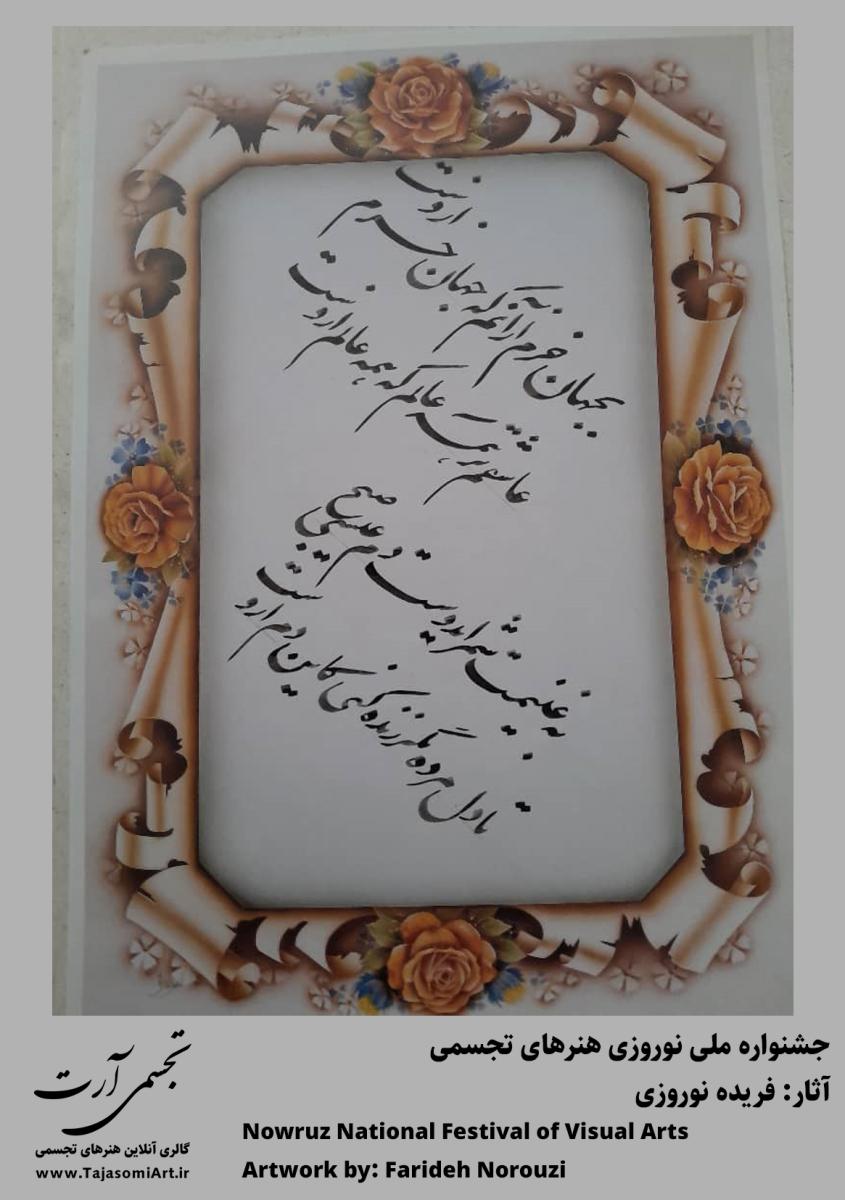 بجهان خرم از آنم که جهان خرم ازوست
عاشقم بر همه عالم که همه عالم ازوست
به غنیمت شمر ایدوست دم عیسی صبح
تا دل مرده مگر زنده کنی کاین دم ازوست
جشنواره ملی نوروزی هنرهای تجسمی
آثار: فریده نوروزی
Nowruz National Festival of Visual Arts
Artwork by: Farideh Norouzi
تجسمی آرت
گالری آنلاین هنرهای تجسمی
www.TajasomiArt.ir